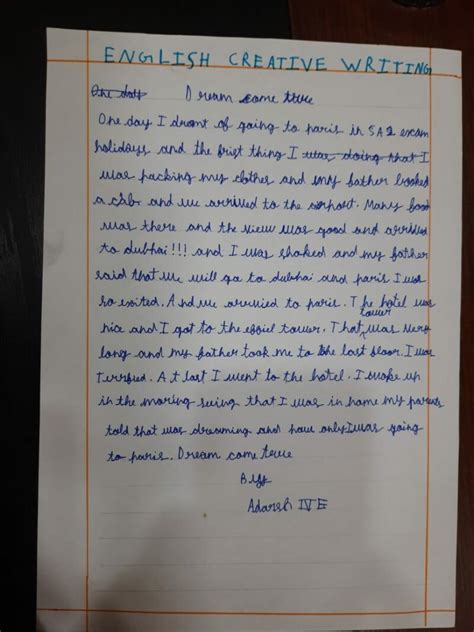 ENGLISH CREATIVE WRITING
One day Dream come true
One day I dromt of going to paris in SA2 exam
holidays and the frist thing I was doing that I
was packing my clothes and my father booked
a cab and we arrived to the airport. Many food
was there and the view was good and arrived
to dubhai!!! and I was shoked and my father
said that we will go to dubhai and paris I was
so exited. And we arrived to paris. The hotel was
tower
nice and I got to the effiel tower. That was very
long and my father took me to the last floor. I was
Terrfied. At last I went to the hotel. I woke up
in the moring seing that I was in home my parents
told that was dreaming and how only I was going
to paris. Dream come true
By
Adarsh IV E